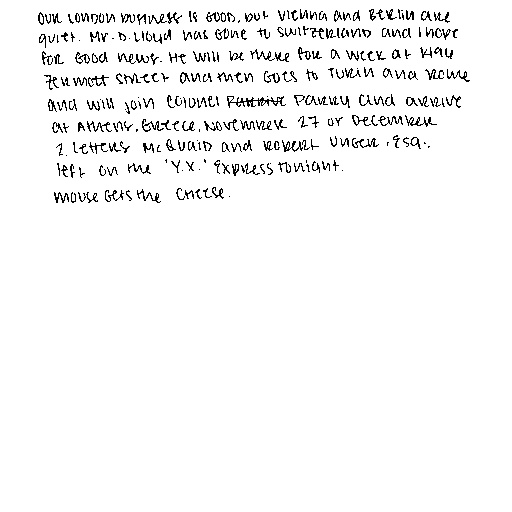 Our London business is good, but Vienna and Berlin are
quiet. Mr. D. Lloyd has gone to Switzerland and I hope
for good news. He will be there for a week at 1496
Zermott Street and then goes to Turin and Rome
and will join Colonel Parry and arrive
at Athens, Greece, November 27 or December
2. Letters McQuaid and Robert Unger, Esq.,
left on the 'Y.X.' Express tonight.
mouse gets the cheese.